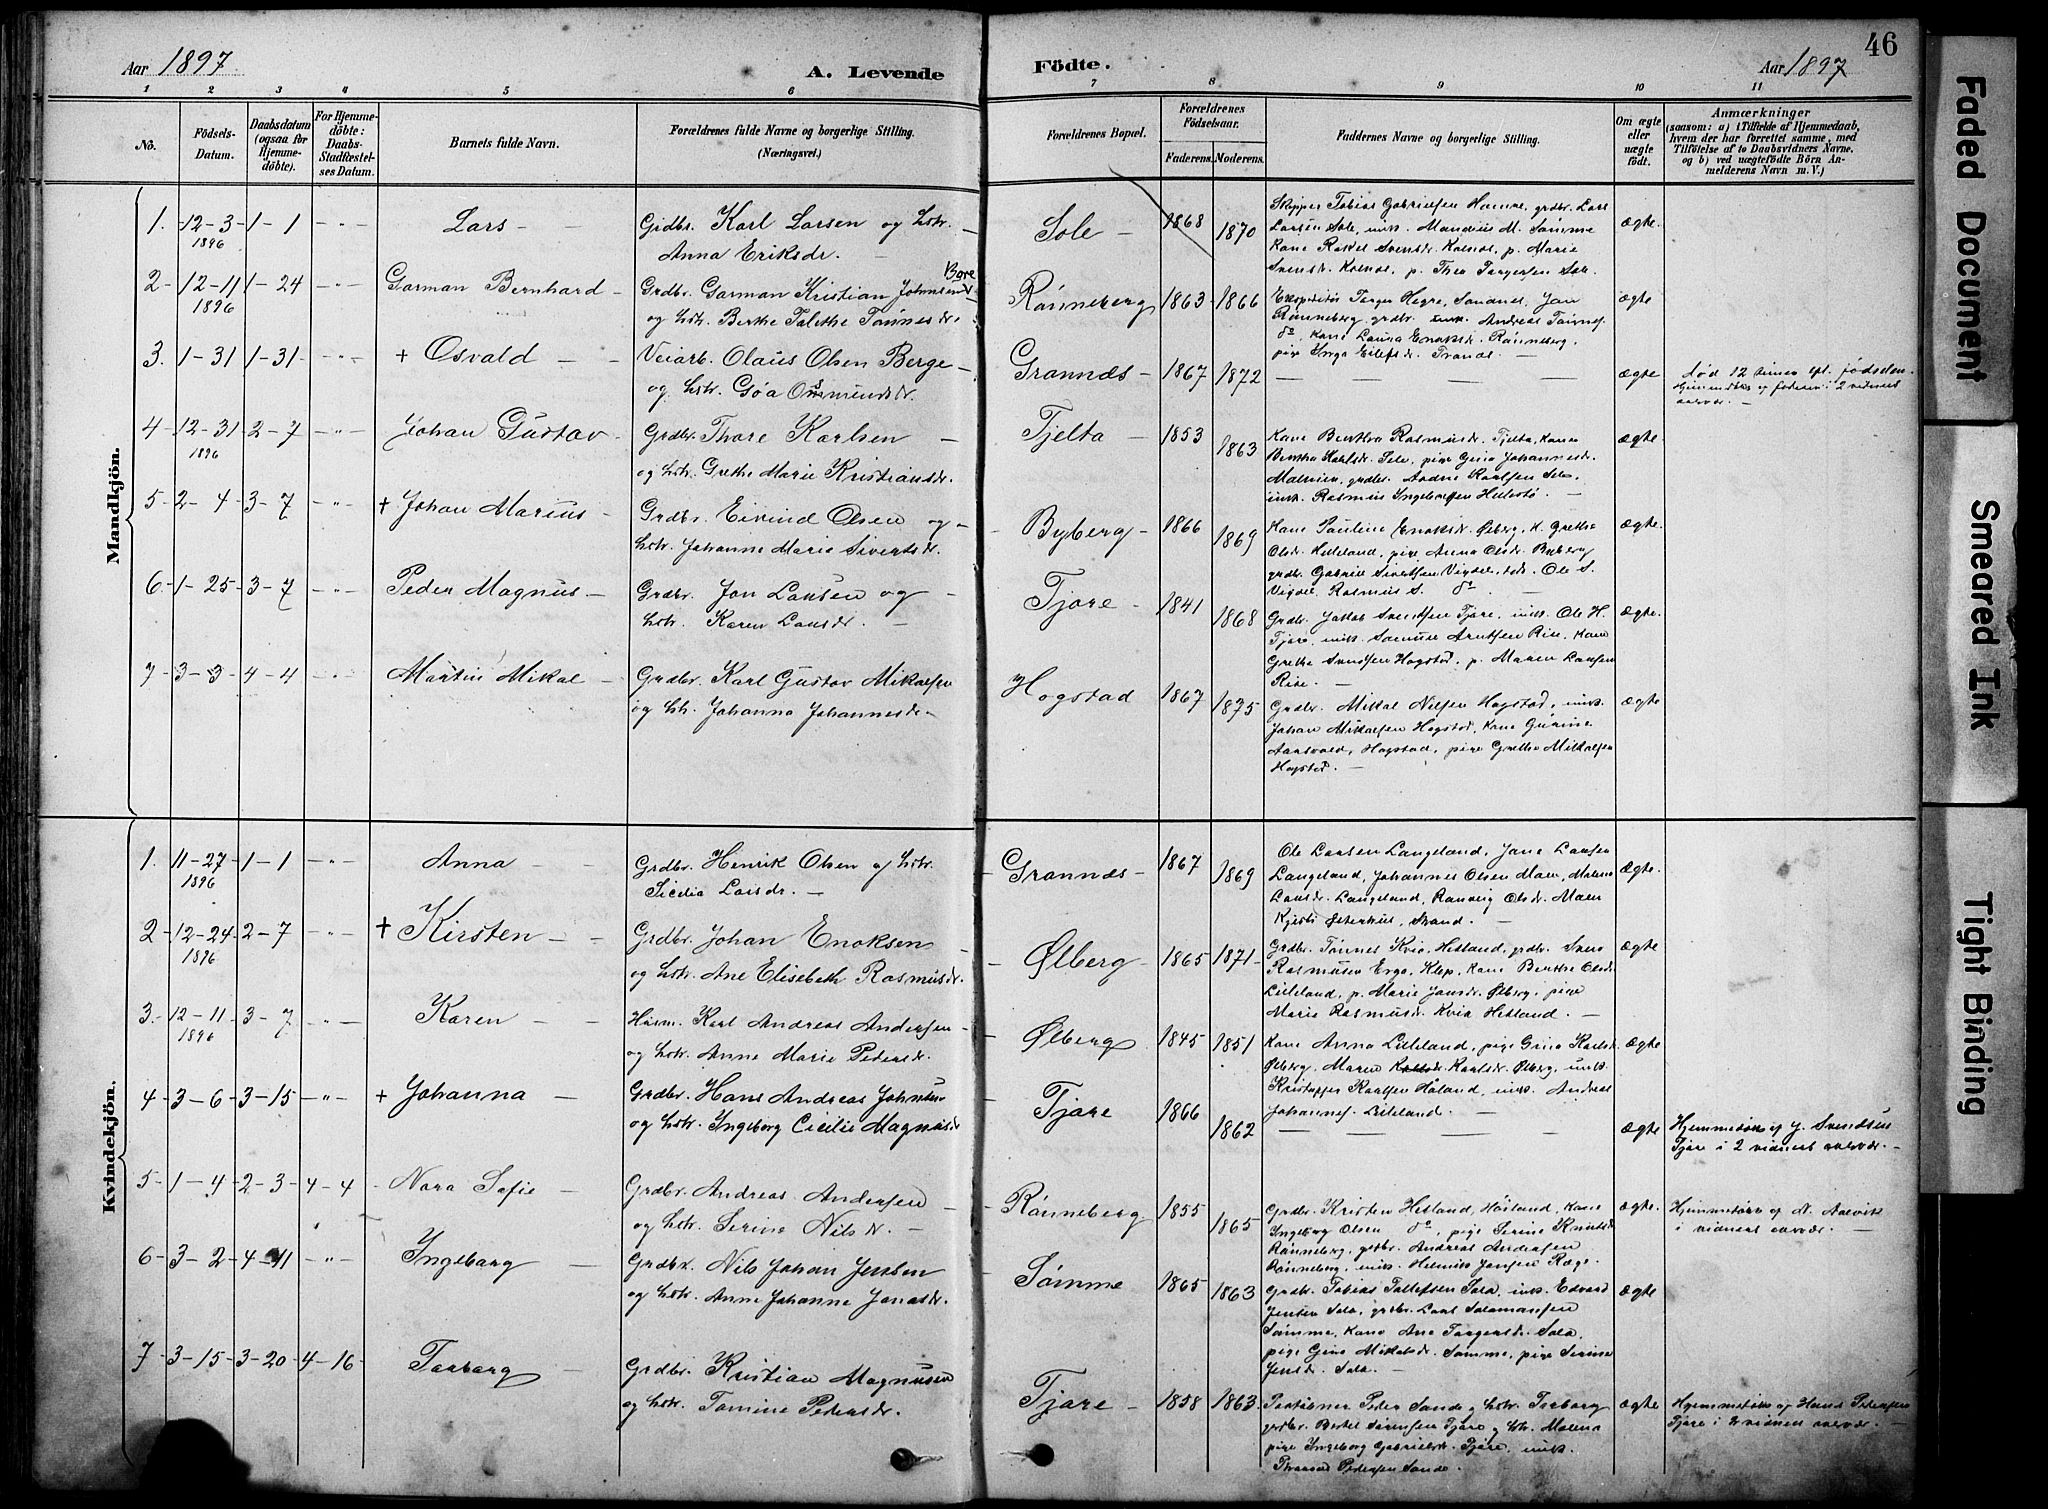 Aar 1897.
A. Levende Födte.
Aar 1897
46
1 2 3 4 5 6 7 8 9 10 11
No.
Födsels-Datum.
Daabsdatum (ogsaa for Hjemmedöbte).
For Hjemmedöbte: Daabs-Stadfæstelses Datum.
Barnets fulde Navn.
Forældrenes fulde Navne og borgerlige Stilling. (Næringsvei.)
Forældrenes Bopæl.
Forældrenes Födselsaar.
Faderens. Moderens.
Faddernes Navne og borgerlige Stilling.
Om ægte eller uægte födt.
Anmærkninger
(saasom: a) i Tilfælde af Hjemmedaab, hvem der har forrettet samme, med Tilföielse af to Daabsvidners Navne. og b) ved uægtefödte Börn Anmelderens Navn m. V.)
Mandkjön.
1. 12-3 1896 1-1 Lars
Grdbr. Karl Larsen og hstr.
Anna Eriksdr.
Sole 1868 1870
Skipper Tobias Gabrielsen, grdbr. Lars
Larsen Sole, M. Sømme
Kone Rakel Svensdr. Kolnes, p. Marie
Svensdr. Kolnes, p. Thea Torgersen Sole.
ægte.
2 12-11 1896 1-24 Garman Bernhard
Grdbr. Garman Kristian Johnsen Bore
og hstr. Berthe Talethe Tønnesdr.
Rønneberg 1863 1866
Torger Hegre, Sandnes, Jan
Rønneberg, grdbr. Andreas
do, Kone Laura Enoksdr. Rønneberg,
pige Inga Eilefsdr. Tranes.
ægte
3. 1-31 1-31 + Osvald
Veiarb. Olaus Olsen Berge
og hstr. Gøa Osmundsdr.
Grannæs 1867 1872
ægte
død 12 timer eft. fødselen
2 vidners
4 12-31 1896 2-7 Johan Gustav
Grdbr. Thore Karlsen
og hstr. Grethe Marie Kristiansdr.
Tjelta 1853 1863
Kone Rasmusdr. Tjelta, Kone
Bertha Karlsdr. Sele, pige Gina Johannesdr.
grdbr. Karlsen Sele,
Rasmus Ingebretsen Hellestø.
ægte
5 2-4 3-7 + Johan Marius
Grdbr. Eivind Olsen og
hstr. Johanne Marie Sivertsdr.
Byberg 1866 1869
Kone Pauline Enoksdr. Ølberg, k. Grethe
Olsdr. pige Anna Olsdr. Byberg
grdbr. Gabriel Sivertsen Vigdel, Ole S.
Vigdel, Rasmus S. do
ægte.
6 1-25 3-7 Peder Magnus
Grdbr. Jon Larsen og
hstr. Karen Larsdr.
Tjore 1841 1868
Grdbr. Jakob Svendsen Tjore, Ole H.
Tjore, Arntsen Rise, Kone
Grethe Svendsen Hogstad, p. Maren Larsen
Rise.
ægte.
7 3-3 4-4 Martin Mikal
Grdbr. Karl Gustav Mikalsen
og hstr. Johanna Johannesdr.
Hogstad 1867 1875
Grdbr. Mikal Nilsen Hogstad,
Johan Mikalsen Hogstad, Kone Gurine
Hogstad, pige Grethe Mikalsen
Hogstad.
ægte
Kvindekjön.
1. 11-27 1896 1-1 Anna
Grdbr. Henrik Olsen og hstr.
Sicilia Larsdr.
Grannæs 1867 1869
Ole Larsen Langeland, Jane Larsen
Langeland, Johannes Olsen Malene
Larsdr. Langeland, Ranveig Olsdr.
Kjisti Østerhus, Strand.
Ægte.
2 12-24 1896 2-7 + Kirsten
Grdbr. Johan Enoksen
og hstr. Ane Elisebeth Rasmusdr.
Ølberg 1865 1871
Grdbr. Tønnes Kvia, Hetland, grdbr. Sven
Rasmusen Erga, Klep, Kone Berthe Olsdr.
Lilleland, p. Marie Jansdr. Ølberg, pige
Marie Rasmusdr. Kvia Hetland.
Ægte
3. 12-11 1896 3-7 Karen
Husm. Karl Andreas Andersen
og hstr. Anne Marie Pedersdr.
Ølberg 1845 1851
Kone Anna Lilleland, pige Gina Karlsdr.
Ølberg, Maren Karlsdr. Ølberg,
Karlsen Håland, Andreas
Johannes. Lilleland.
Ægte
4 3-6 3-15 + Johanna
Grdbr. Hans Andreas Johnsen
og hstr. Ingeborg Cicilie Magnusdr.
Tjore 1866 1862
Ægte
Hjemmedøbt af J. Svendsen
Tjore i 2 vidners
5 1-4 2-3 4-4 Nora Sofie
Grdbr. Andreas Andersen
og hstr. Serine Nilsdr.
Rønneberg 1855 1865
Grdbr. Kristen Hetland, Høiland, Kone
Ingeborg Olsen do, pige Serine Knutsdr.
Rønneberg, grdbr. Andreas Andersen
Rønneberg, Jansen Røge.
ægte.
Hjemmedøbt af
i vidners
6 3-2 4-11 Ingeborg
Grdbr. Nils Johan Jensen
og hstr. Anne Johanne Jonasdr.
Sømme 1865 1863
Grdbr. Tobias Tollefsen Sola, Edvard
Jensen Sola, grdbr. Lars Salamonsen
Sømme, Kone Ane Torgersdr. Sola,
pige Gina Mikalsdr. Sømme, pige Serine
Jensdr. Sola.
Ægte
7 3-15 3-20 4-16 Torborg
Grdbr. Kristian Magnusen
og hstr. Tomine Pedersdr.
Tjore 1858 1863
Peder Sande og hstr. Torborg
grdbr. Bertel Sørensen Tjore og hstr. Malena
pige Ingeborg Gabrielsdr. Tjore,
Pedersen Sande.
Ægte
Hjemmedøbt af Hans Pedersen
Tjore i 2 vidners
Faded Document
Smeared Ink
Tight Binding